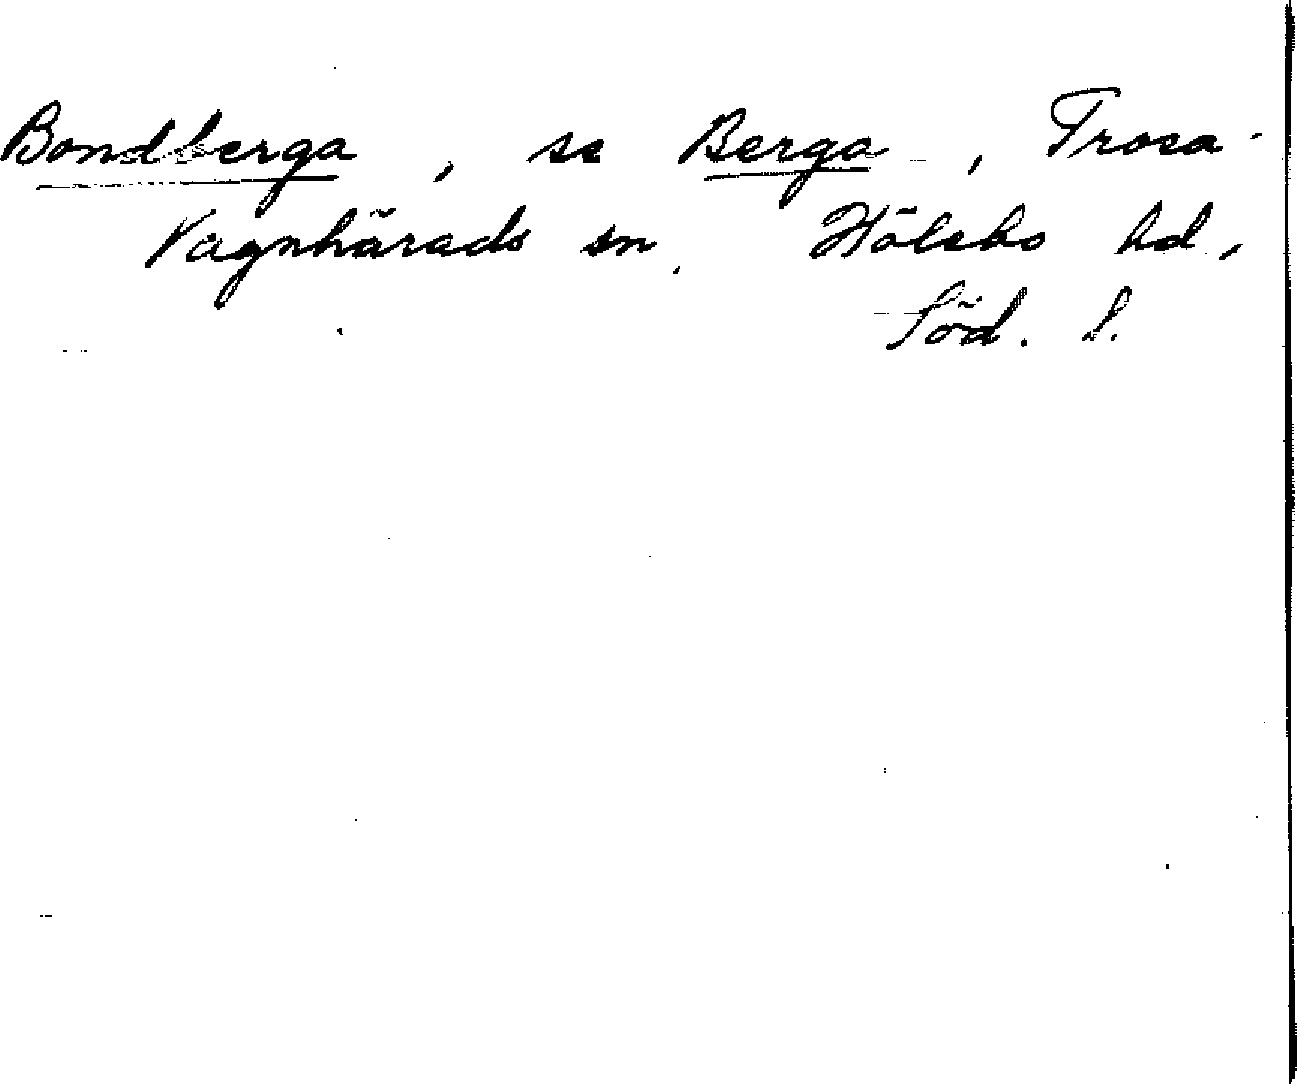 Bondberga, se Berga, Trosa-
Vagnhärads sn, Hölebo hd,
Söd. l.